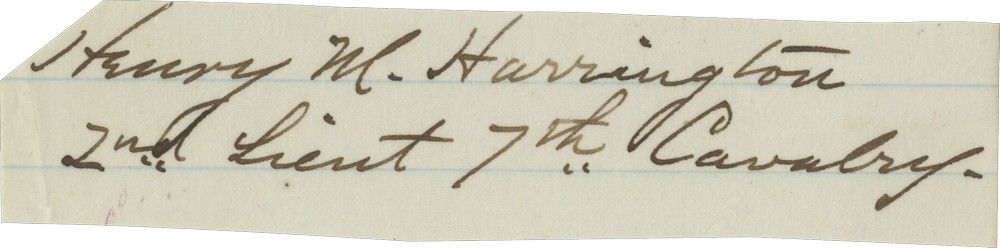 Henry M. Harrington
2nd Lieut 7th Cavalry.